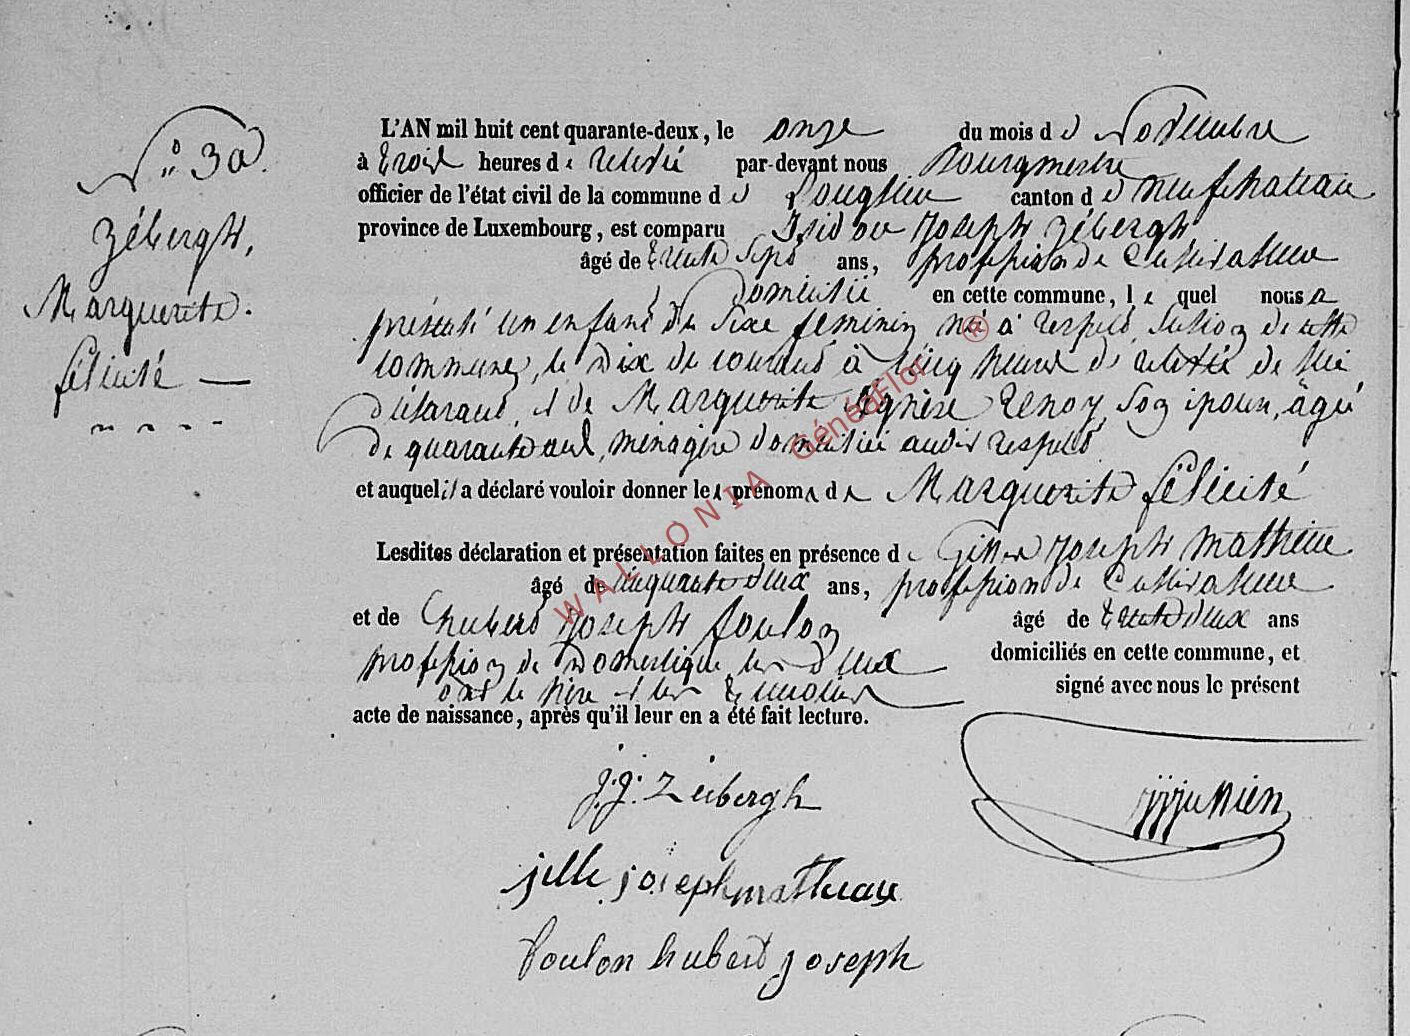 N° 30.
Zébergh,
Marguerite.
félicité —
L'AN mil huit cent quarante-deux, le onze du mois de Novembre
à trois heures de relevée par-devant nous Bourgmestre
officier de l'état civil de la commune de Longlier canton de neufchateau
province de Luxembourg, est comparu Isidore Joseph Zébergh
âgé de trente sept ans, profession de Cultivateur
Domicilié en cette commune, le quel nous a
présenté un enfant du sexe féminin né à respelt, section de cette
commune, le dix du courant à cinq heures de relevée de lui
déclarant, et de Marguerite Agnèse Renoy son épouse, âgée
de quarante ans, ménagère domiciliée audit respelt
et auquel il a déclaré vouloir donner les prénoms de Marguerite félicité
Lesdites déclaration et présentation faites en présence de Gilles Joseph Mathieu
âgé de cinquante deux ans, profession de Cultivateur
et de hubert Joseph foulon âgé de trente deux ans
profession de Domestique les deux domiciliés en cette commune, et
ont le père et les témoins signé avec nous le présent
acte de naissance, après qu'il leur en a été fait lecture.
j.j. Zeibergh
jille joseph mathieux
foulon hubert joseph
WALLONIA GénéaFlor ®